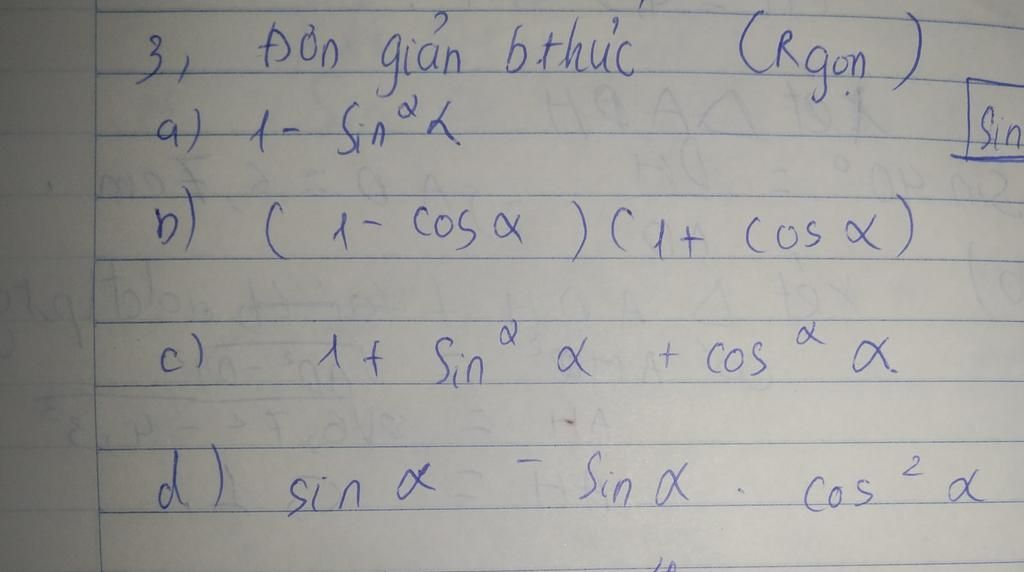 3, Đơn giản bthức (Rgọn)
a) 1 - Sin²α
Sin
b) (1 - cos α)(1 + cos α)
c) 1 + Sin² α + cos² α
d) sin α - Sin α . cos² α